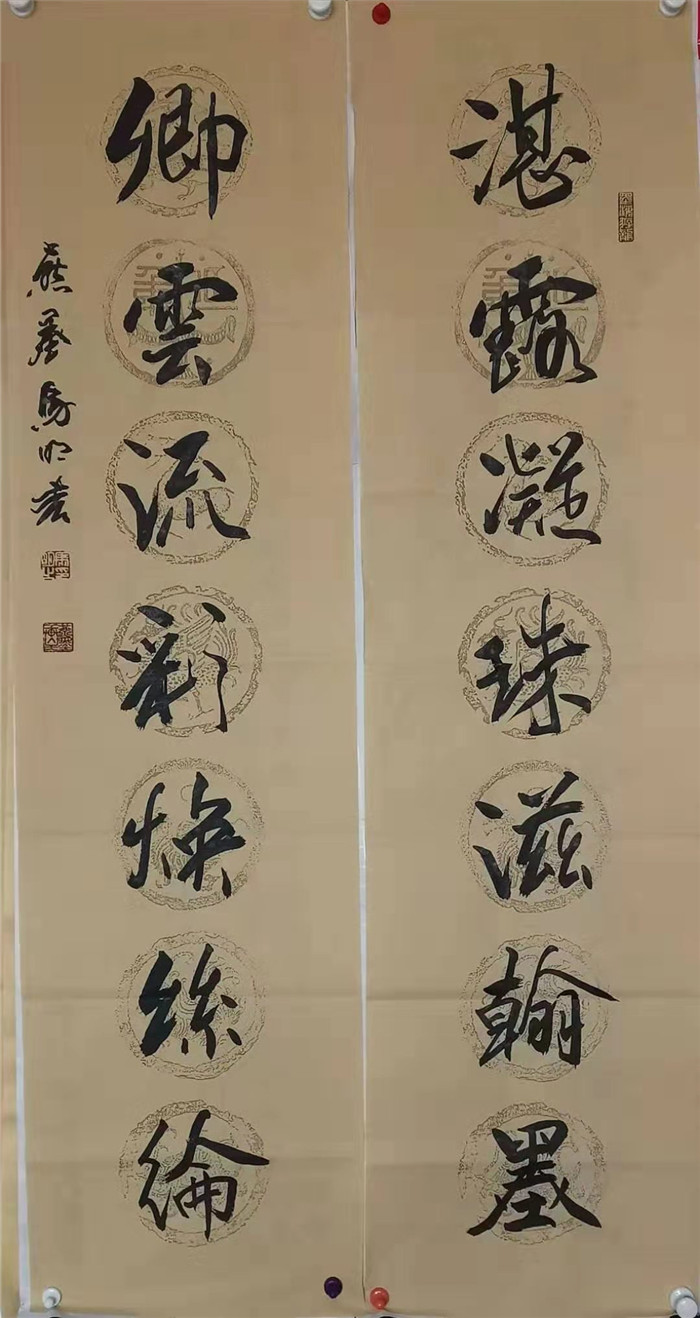 湛露凝珠滋翰墨
卿雲流彩煥絲綸